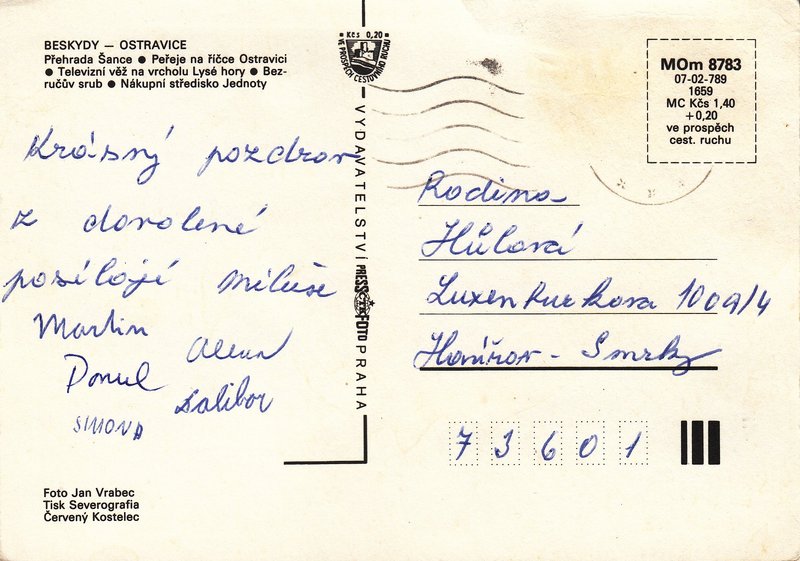 BESKYDY — OSTRAVICE
Přehrada Šance ● Peřeje na říčce Ostravici
● Televizní věž na vrcholu Lysé hory ● Bez-
ručův srub ● Nákupní středisko Jednoty
Krásný pozdrav
z dovolené
posílají Miluše
Martin
Alena
Dalibor
SIMONA
Foto Jan Vrabec
Tisk Severografia
Červený Kostelec
Kčs 0,20
VE PROSPĚCH CESTOVNÍHO RUCHU
VYDAVATELSTVÍ PRESSFOTO PRAHA
MOm 8783
07-02-789
1659
MC Kčs 1,40
+0,20
ve prospěch
cest. ruchu
Rodina
Hůlová
Luxemburkova 1009/4
Havířov - Šumbark
73601